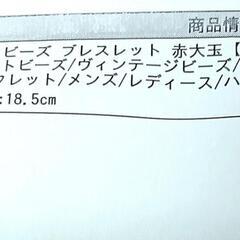 商品情
ビーズ ブレスレット 赤大玉【
トビーズ/ヴィンテージビーズ/
クレット/メンズ/レディース/ハ
:18.5cm